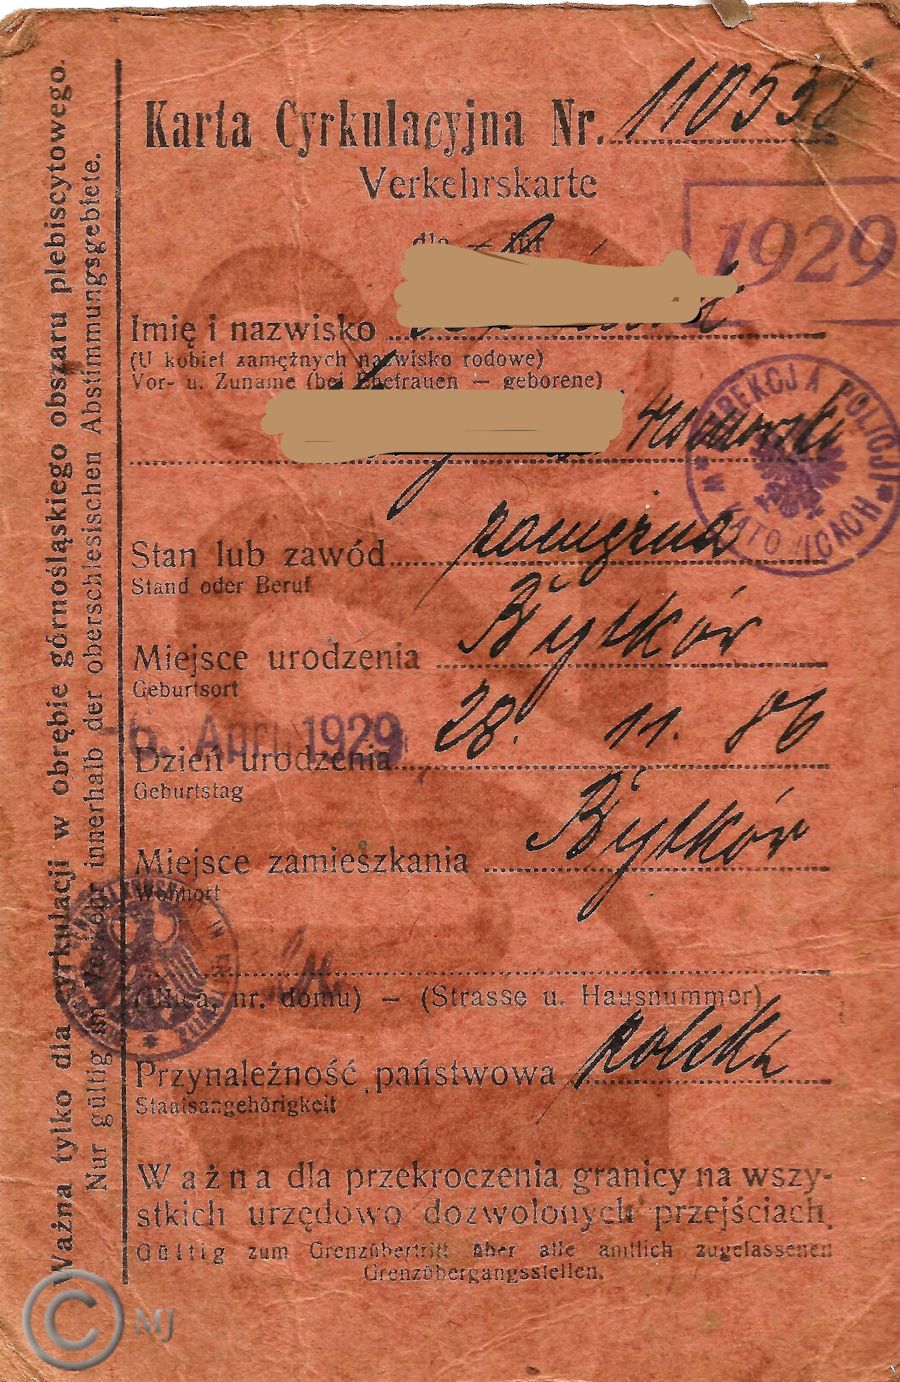 Karta Cyrkulacyjna Nr. 110538
Verkehrskarte
dla — für
1929
Imię i nazwisko
(U kobiet zamężnych nazwisko rodowe)
Vor- u. Zuname (bei Ehefrauen — geborene)
DYREKCJA POLICJI W KATOWICACH
Stan lub zawód zamężna
Stand oder Beruf
Miejsce urodzenia Bytków
Geburtsort
-6. Apr. 1929
Dzień urodzenia 28. 11. 86
Geburtstag
Miejsce zamieszkania Bytków
Wohnort
(Ulica, nr. domu) — (Strasse u. Hausnummer)
Przynależność państwowa polska
Staatsangehörigkeit
Ważna dla przekroczenia granicy na wszy-
stkich urzędowo dozwolonych przejściach.
Gültig zum Grenzübertritt über alle amtlich zugelassenen
Grenzübergangsstellen.
Ważna tylko dla cyrkulacji w obrębie górnośląskiego obszaru plebiscytowego.
Nur gültig im Verkehr innerhalb der oberschlesischen Abstimmungsgebiete.
© MJ